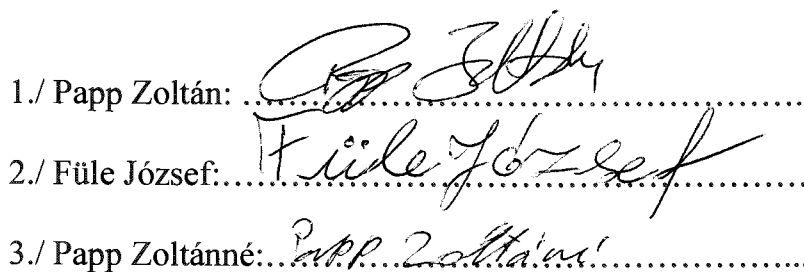 1./ Papp Zoltán: Papp Zoltán
2./ Füle József:......Füle József
3./ Papp Zoltánné:..Papp Zoltánné